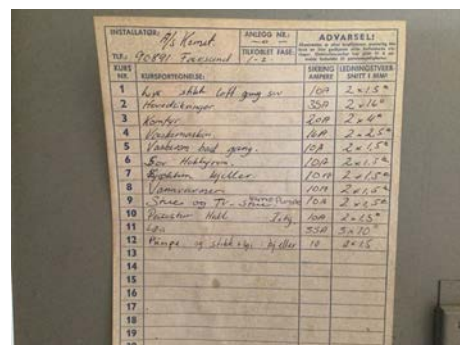 INSTALLATØR: A/S Kamet ANLEGG NR.: ADVARSEL!
TLF.: 90891 Farsund TILKOBLET FASE: 1-2
KURS NR. KURSFORTEGNELSE: SIKRING AMPERE LEDNINGSTVERRSNITT I MM²
1 Lys stikk loft gang sov 10A 2 x 1,5²
2 Hovedsikringer 35A 2 x 16²
3 Komfyr 20A 2 x 4²
4 Vaskemaskin. 16A 2 x 2,5²
5 Vaskerom bad gang. 10A 2 x 1,5²
6 Sov Hobbyrom. 10A 2 x 1,5²
7 kjeller 10A 2 x 1,5²
8 Varmvanner 10A 2 x 1,5²
9 Stuer og TV-Stuer Varme Pumpe 10A 2 x 1,5²
10 Hall 10A 2 x 1,5²
11 35A 3 x 10²
12 Pumpe og stikk kjeller 10 2x1,5
13
14
15
16
17
18
19